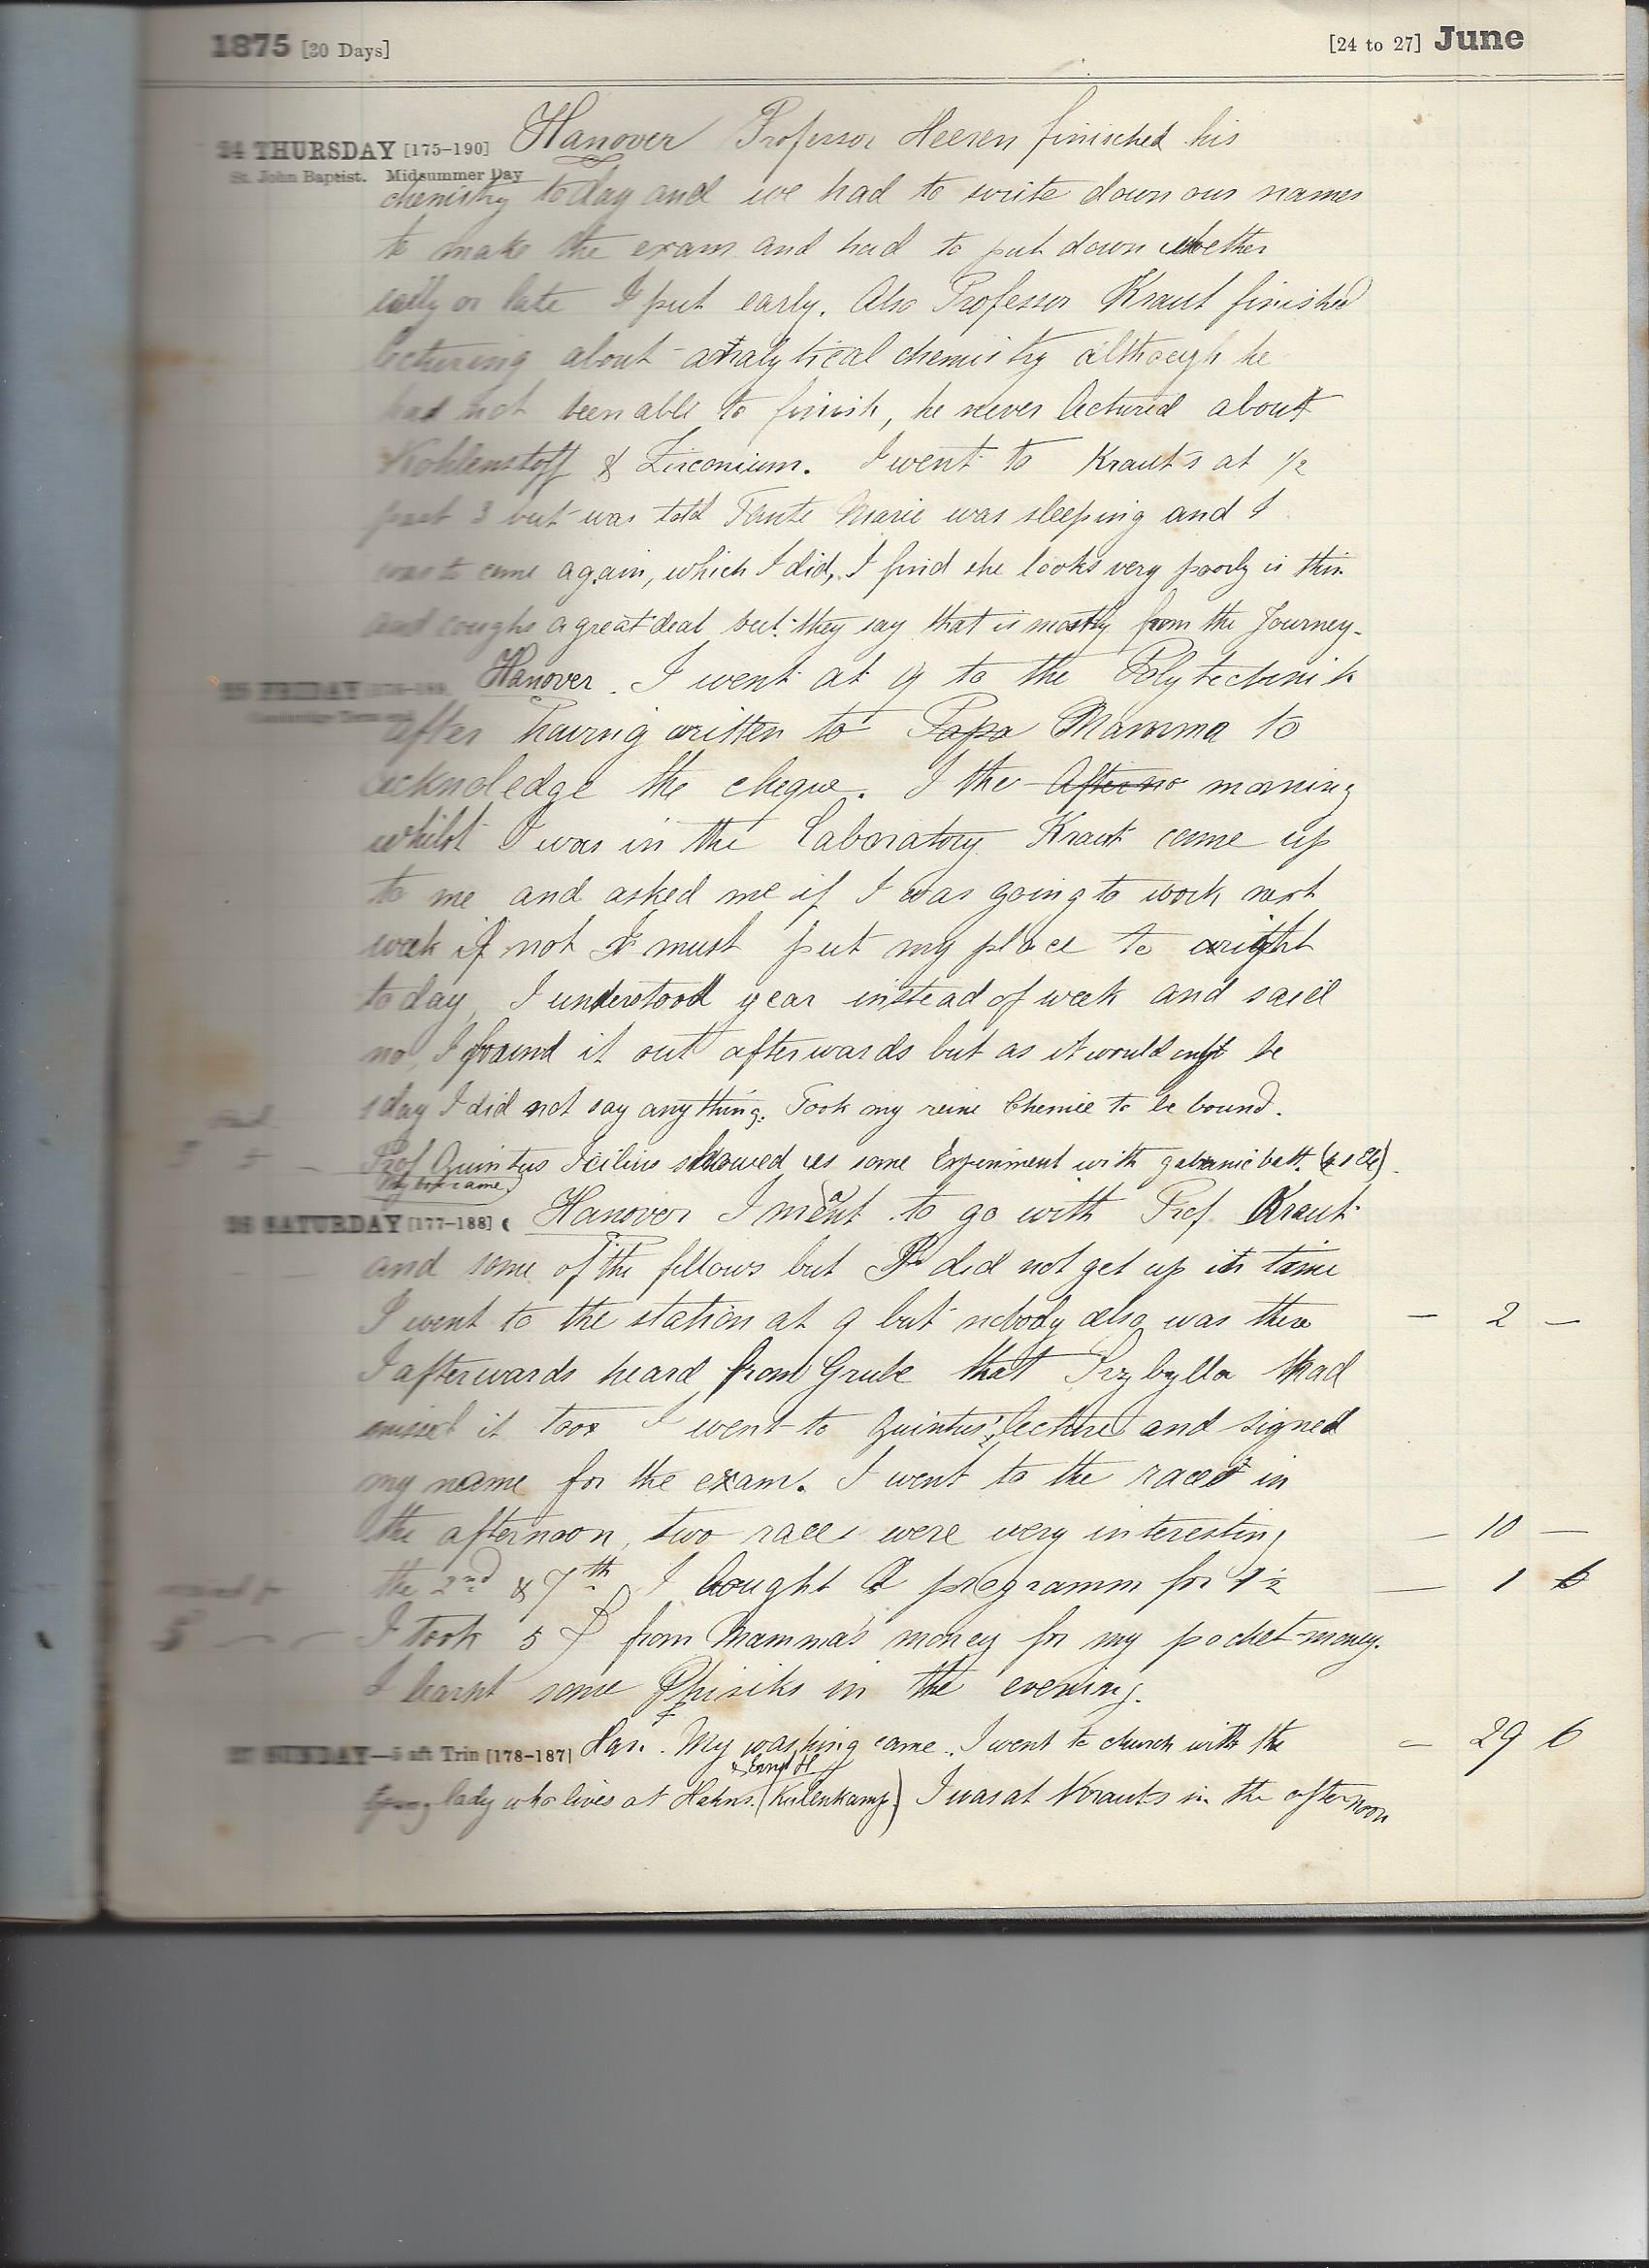 1875 [30 Days] [24 to 27] June
24 THURSDAY [175-190] Hanover Professor Heeren finisched his
St. John Baptist. Midsummer Day
chemistry today and we had to write down our names
to make the exam and had to put down whether
early or late I put early. Also Professor Kraut finished
lecturing about analytical chemistry although he
had not been able to finish, he never lectured about
Kohlenstoff & Zirconium. I went to Krauts at 1/2
past 3 but was told Tante Marie was sleeping and I
was to come again, which I did, I find she looks very poorly is thin
and coughs a great deal but they say that is mostly from the Journey.
25 FRIDAY Hanover. I went at 9 to the Polytechnik
after having written to Papa Mamma to
acknoledge the cheque. I the Afterno morning
whilst I was in the Laboratory Kraut came up
to me and asked me if I was going to work next
week if not I must put my place to wright
today, I understood year instead of week and said
no, I found it out afterwards but as it would only be
1 day I did not say anything. Took my reine Chemie to be bound.
Prof Quintus Icilius showed us some Experiment with galvanic batt.
My box came
26 SATURDAY [177-188] Hanover I meant to go with Prof. Kraut
and some of the fellows but I did not get up in time
I went to the station at 9 but nobody else was there — 2 —
I afterwards heard from Grube that Przybylla had
missed it too I went to Quintus' lecture and signed
my name for the exam. I went to the races in
the afternoon, two races were very interesting — 10 —
the 2nd & 7th I bought a programm for 1 1/2 — 1 6
5 — — I took 5 from Mamma's money for my pocket-money.
I learnt some Phisiks in the evening.
27 SUNDAY—5 aft Trin [178-187] Han. My washing came. I went to church with the — 29 6
young lady who lives at Hahns. (Kulenkamp) I was at Krauts in the afternoon